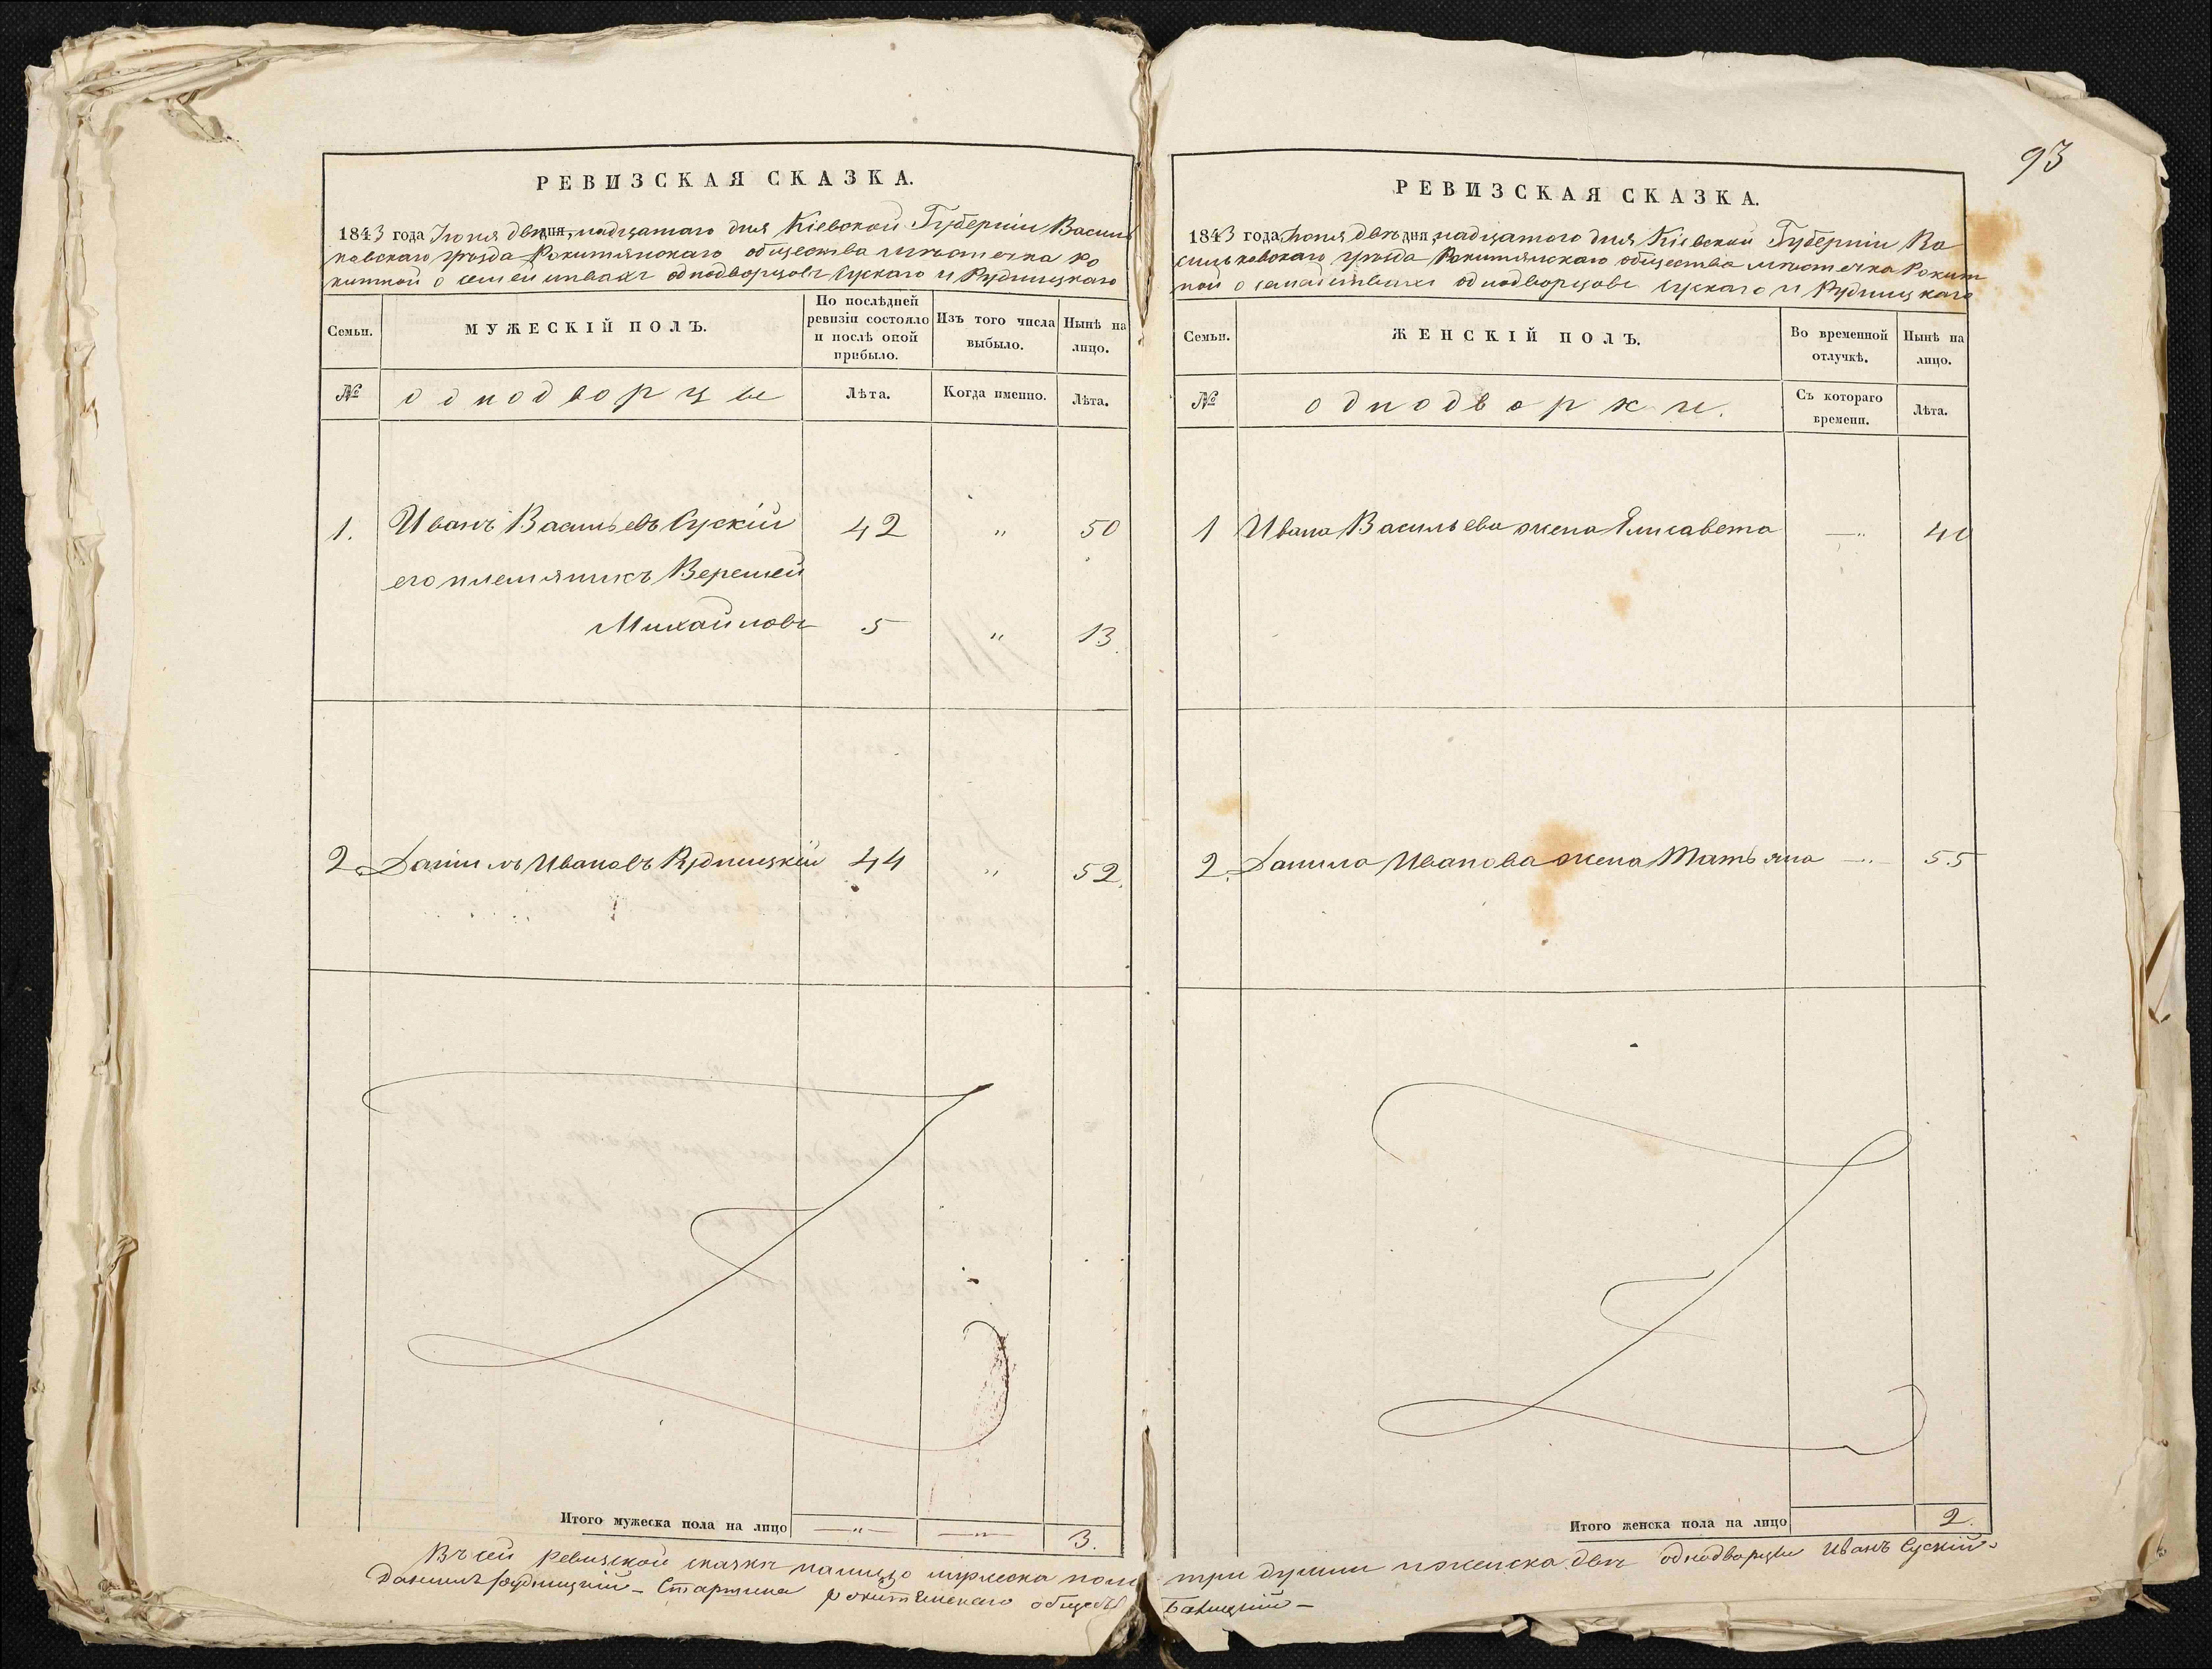 РЕВИЗСКАЯ СКАЗКА.
1843 года Іюня двѣнадцатаго дня Кіевской Губерніи Василь
ковскаго уѣзда Рокитянскаго общества мѣстечка Ро
китной о семействахъ однодворцовъ Сускаго и Рудницкаго
Семьи.
МУЖЕСКІЙ ПОЛЪ.
По послѣдней ревизіи состояло и послѣ оной прибыло.
Изъ того числа выбыло.
Нынѣ на лицо.
№
однодворцы
Лѣта.
Когда именно.
Лѣта.
1. Иванъ Васильевъ Сускій 42 „ 50
его племянникъ
Михайловъ 5 „ 13.
2. Даніилъ Ивановъ Рудницкій 44 „ 52.
Итого мужеска пола на лицо —„— —„— 3.
93
РЕВИЗСКАЯ СКАЗКА.
1843 года Іюня двѣнадцатого дня Кіевской Губерніи Ва
сильковскаго уѣзда Рокитянскаго общества мѣстечка Рокит
ной о семействахъ однодворцовъ Сускаго и Рудницкаго
Семьи.
ЖЕНСКІЙ ПОЛЪ.
Во временной отлучкѣ.
Нынѣ на лицо.
№
однодворки.
Съ котораго времени.
Лѣта.
1 Ивана Васильева жена Елисавета —„ 40
2. Данила Иванова жена Татьяна —„— 55
Итого женска пола на лицо 2.
Въ сей ревизской сказкѣ налицо мужеска пола три души и женска двѣ однодворцы Иванъ Сускій
Даниилъ Рудницкій — Старшина Рокитянскаго